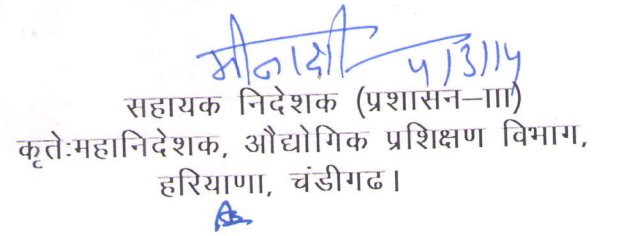 मीनाक्षी 4/3/14
सहायक निदेशक (प्रशासन–III)
कृतेःमहानिदेशक, औद्योगिक प्रशिक्षण विभाग,
हरियाणा, चंडीगढ।